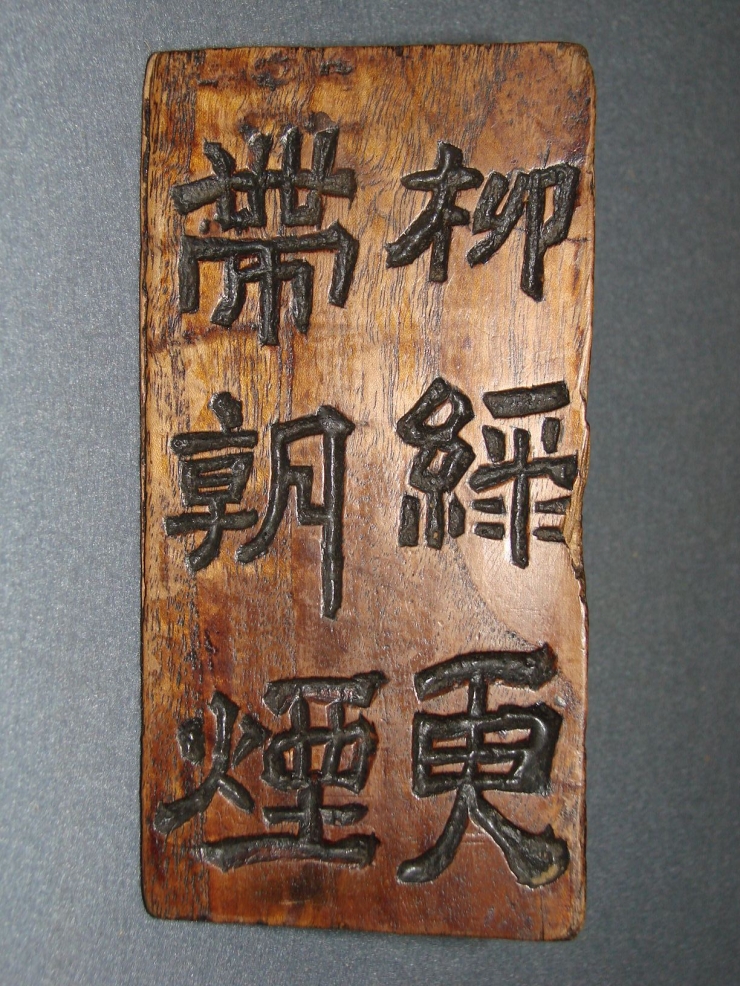 柳綠更
帶朝煙